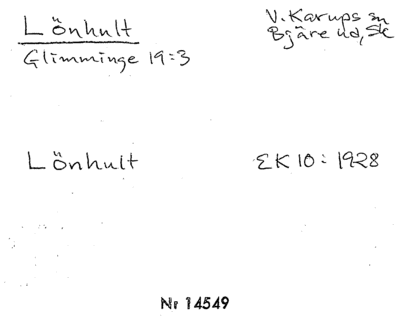 Lönhult
V. Karups sn
Bjäre hd, Sk
Glimminge 19:3
Lönhult
EK 10: 1928
Nr 14549